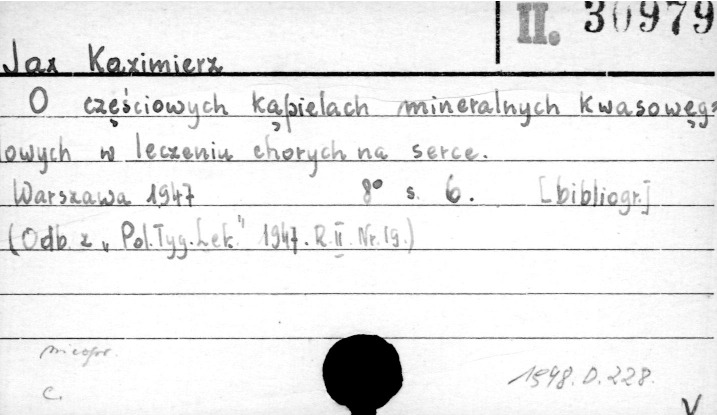 II. 30979
Jax Kazimierz
O częściowych kąpielach mineralnych kwasowęg=
lowych w leczeniu chorych na serce.
Warszawa 1947 8° s. 6. [bibliogr.]
(Odb. z „Pol. Tyg. Lek." 1947. R. II. Nr. 19.)
1548. D. 228.
c.
V